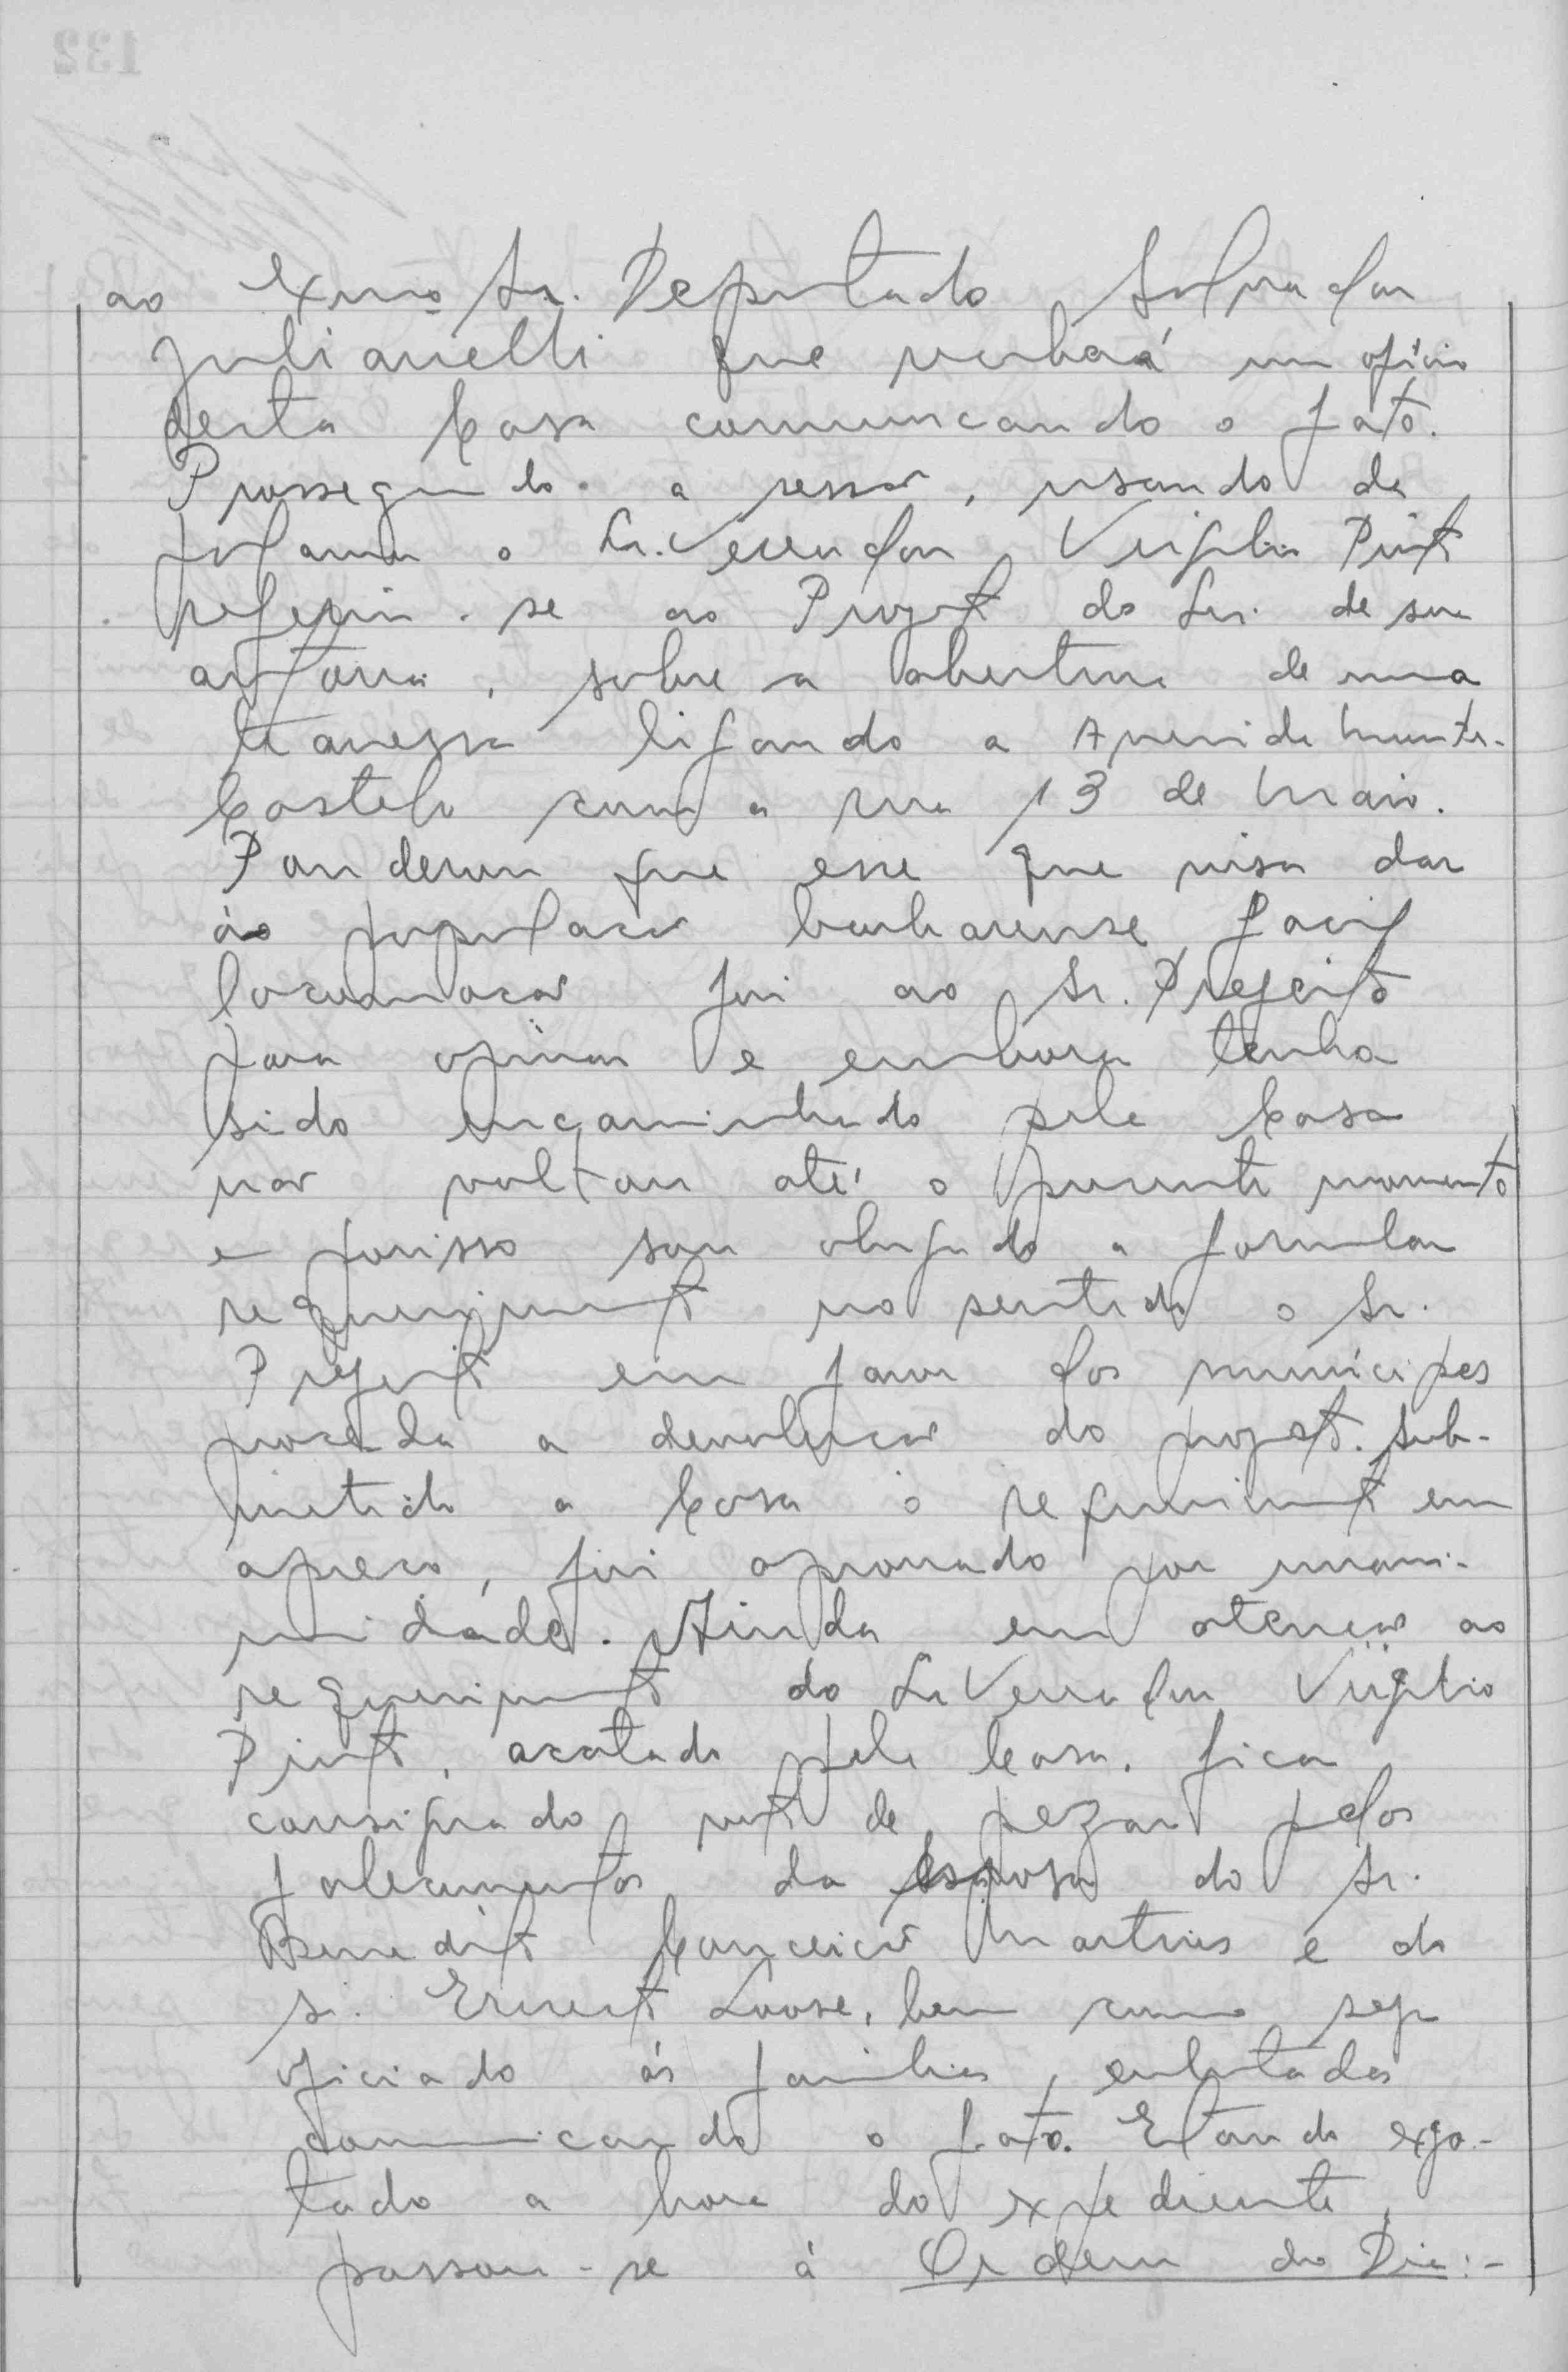 ao Exmo Sr. Deputado Salvador
Julianelli que receberá um oficio
desta Casa comunicando o fato.
Prosseguindo a sessão, usando da
palavra o Sr. Vereador Virgilio Pinto
referiu-se ao Projeto de Lei de sua
autoria, sobre a abertura de uma
travessa ligando a Avenida Monte
Castelo com a rua 13 de Maio.
Ponderou que esse que visa dar
áo população barbarense facil
locomoção foi ao Sr. Prefeito
para opinar e embora tenha
sido encaminhado pela Casa
não voltou até o presente momento
e porisso sou obrigado a formular
requerimento no sentido o Sr.
Prefeito em favor dos munícipes
proceda a devolução do projeto. Sub-
metido a Casa o requerimento em
apreço, foi aprovado por unani-
midade. Ainda em atenção ao
requerimento do Sr Vereador Virgilio
Pinto, acatado pela Casa, fica
consignado voto de pezar pelos
falecimentos da esposa do Sr.
Benedito Conceição Martins e do
sr. Ernesto Loose, bem como seja
oficiado ás familias enlutadas
comunicando o fato. Estando esgo-
tado a hora do expediente,
passou-se á Ordem do Dia:-